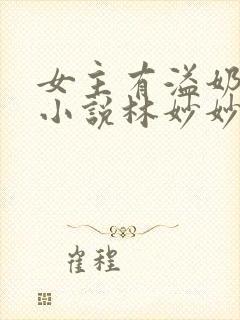 女主有溢奶
小说林妙妙
崔程